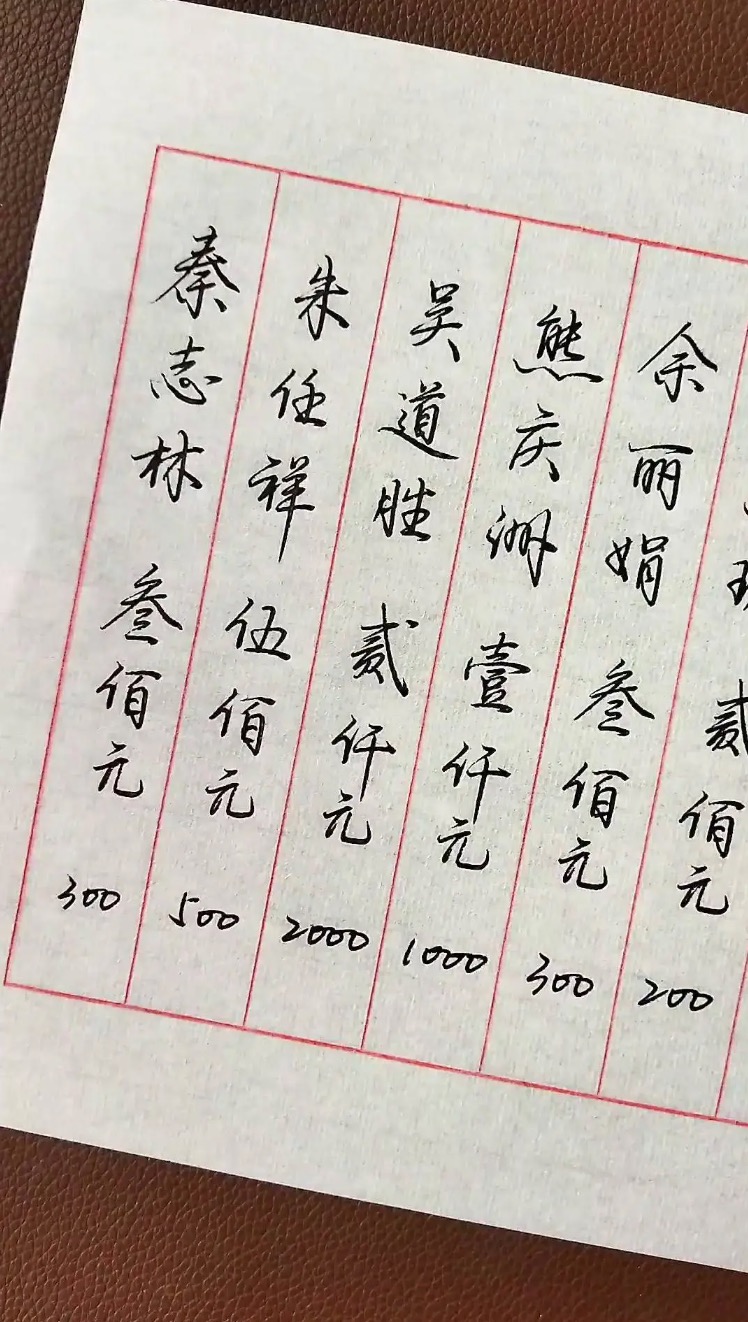 贰佰元
200
余丽娟
叁佰元
300
熊庆洲
壹仟元
1000
吴道胜
贰仟元
2000
朱任祥
伍佰元
500
秦志林
叁佰元
300